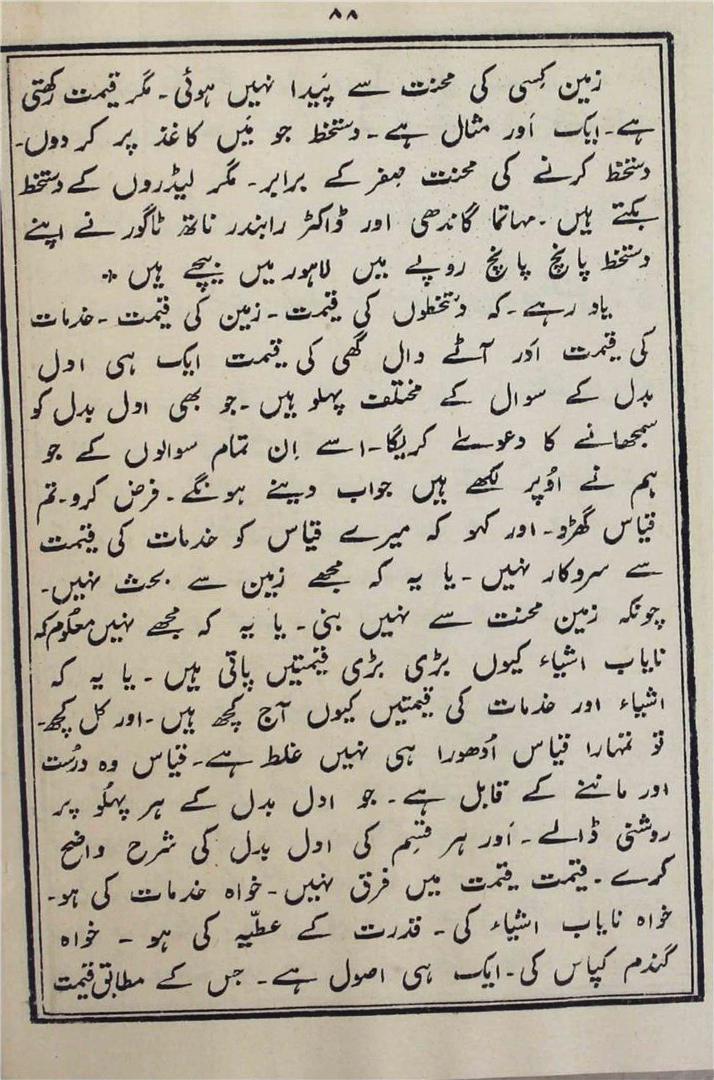 ۸۸
زمین کِسی کی محنت سے پَیدا نہیں ہوئی۔ مگر قیمت رکھتی
ہے۔ ایک اَور مثال ہے۔ دستخط جو مَیں کاغذ پر کر دوں۔
دستخط کرنے کی محنت صِفر کے برابر۔ مگر لیڈروں کے دستخط
بکتے ہیں۔ مہاتما گاندھی اور ڈاکٹر رابندر ناتھ ٹاگور نے اپنے
دستخط پانچ پانچ روپے میں لاہور میں بیچے ہیں *
یاد رہے۔ کہ دستخطوں کی قیمت۔ زمین کی قیمت۔ خدمات
کی قیمت اَور آٹے دال گھی کی قیمت ایک ہی ادل
بدل کے سوال کے مختلف پہلو ہیں۔ جو بھی ادل بدل کو
سمجھانے کا دعوےٰ کریگا۔ اسے اِن تمام سوالوں کے جو
ہم نے اوُپر لکھے ہیں جواب دینے ہونگے۔ فرض کرو۔ تم
قیاس گھڑو۔ اور کہو کہ میرے قیاس کو خدمات کی قیمت
سے سروکار نہیں۔ یا یہ کہ مجھے زمین سے بحث نہیں۔
چونکہ زمین محنت سے نہیں بنی۔ یا یہ کہ مجھے نہیں معلُوم کہ
نایاب اشیاء کیوں بڑی بڑی قیمتیں پاتی ہیں۔ یا یہ کہ
اشیاء اور خدمات کی قیمتیں کیوں آج کچھ ہیں۔ اور کل کچھ۔
تو تمہارا قیاس اَدھورا ہی نہیں غلط ہے۔ قیاس وہ درُست
اور ماننے کے قابل ہے۔ جو ادل بدل کے ہر پہلُو پر
روشنی ڈالے۔ اَور ہر قسِم کی ادل بدل کی شرح واضح
کرے۔ قیمت قیمت میں فرق نہیں۔ خواہ خدمات کی ہو۔
خواہ نایاب اشیاء کی۔ قدرت کے عطیّہ کی ہو ۔ خواہ
گندم کپاس کی۔ ایک ہی اصول ہے۔ جس کے مطابق قیمت